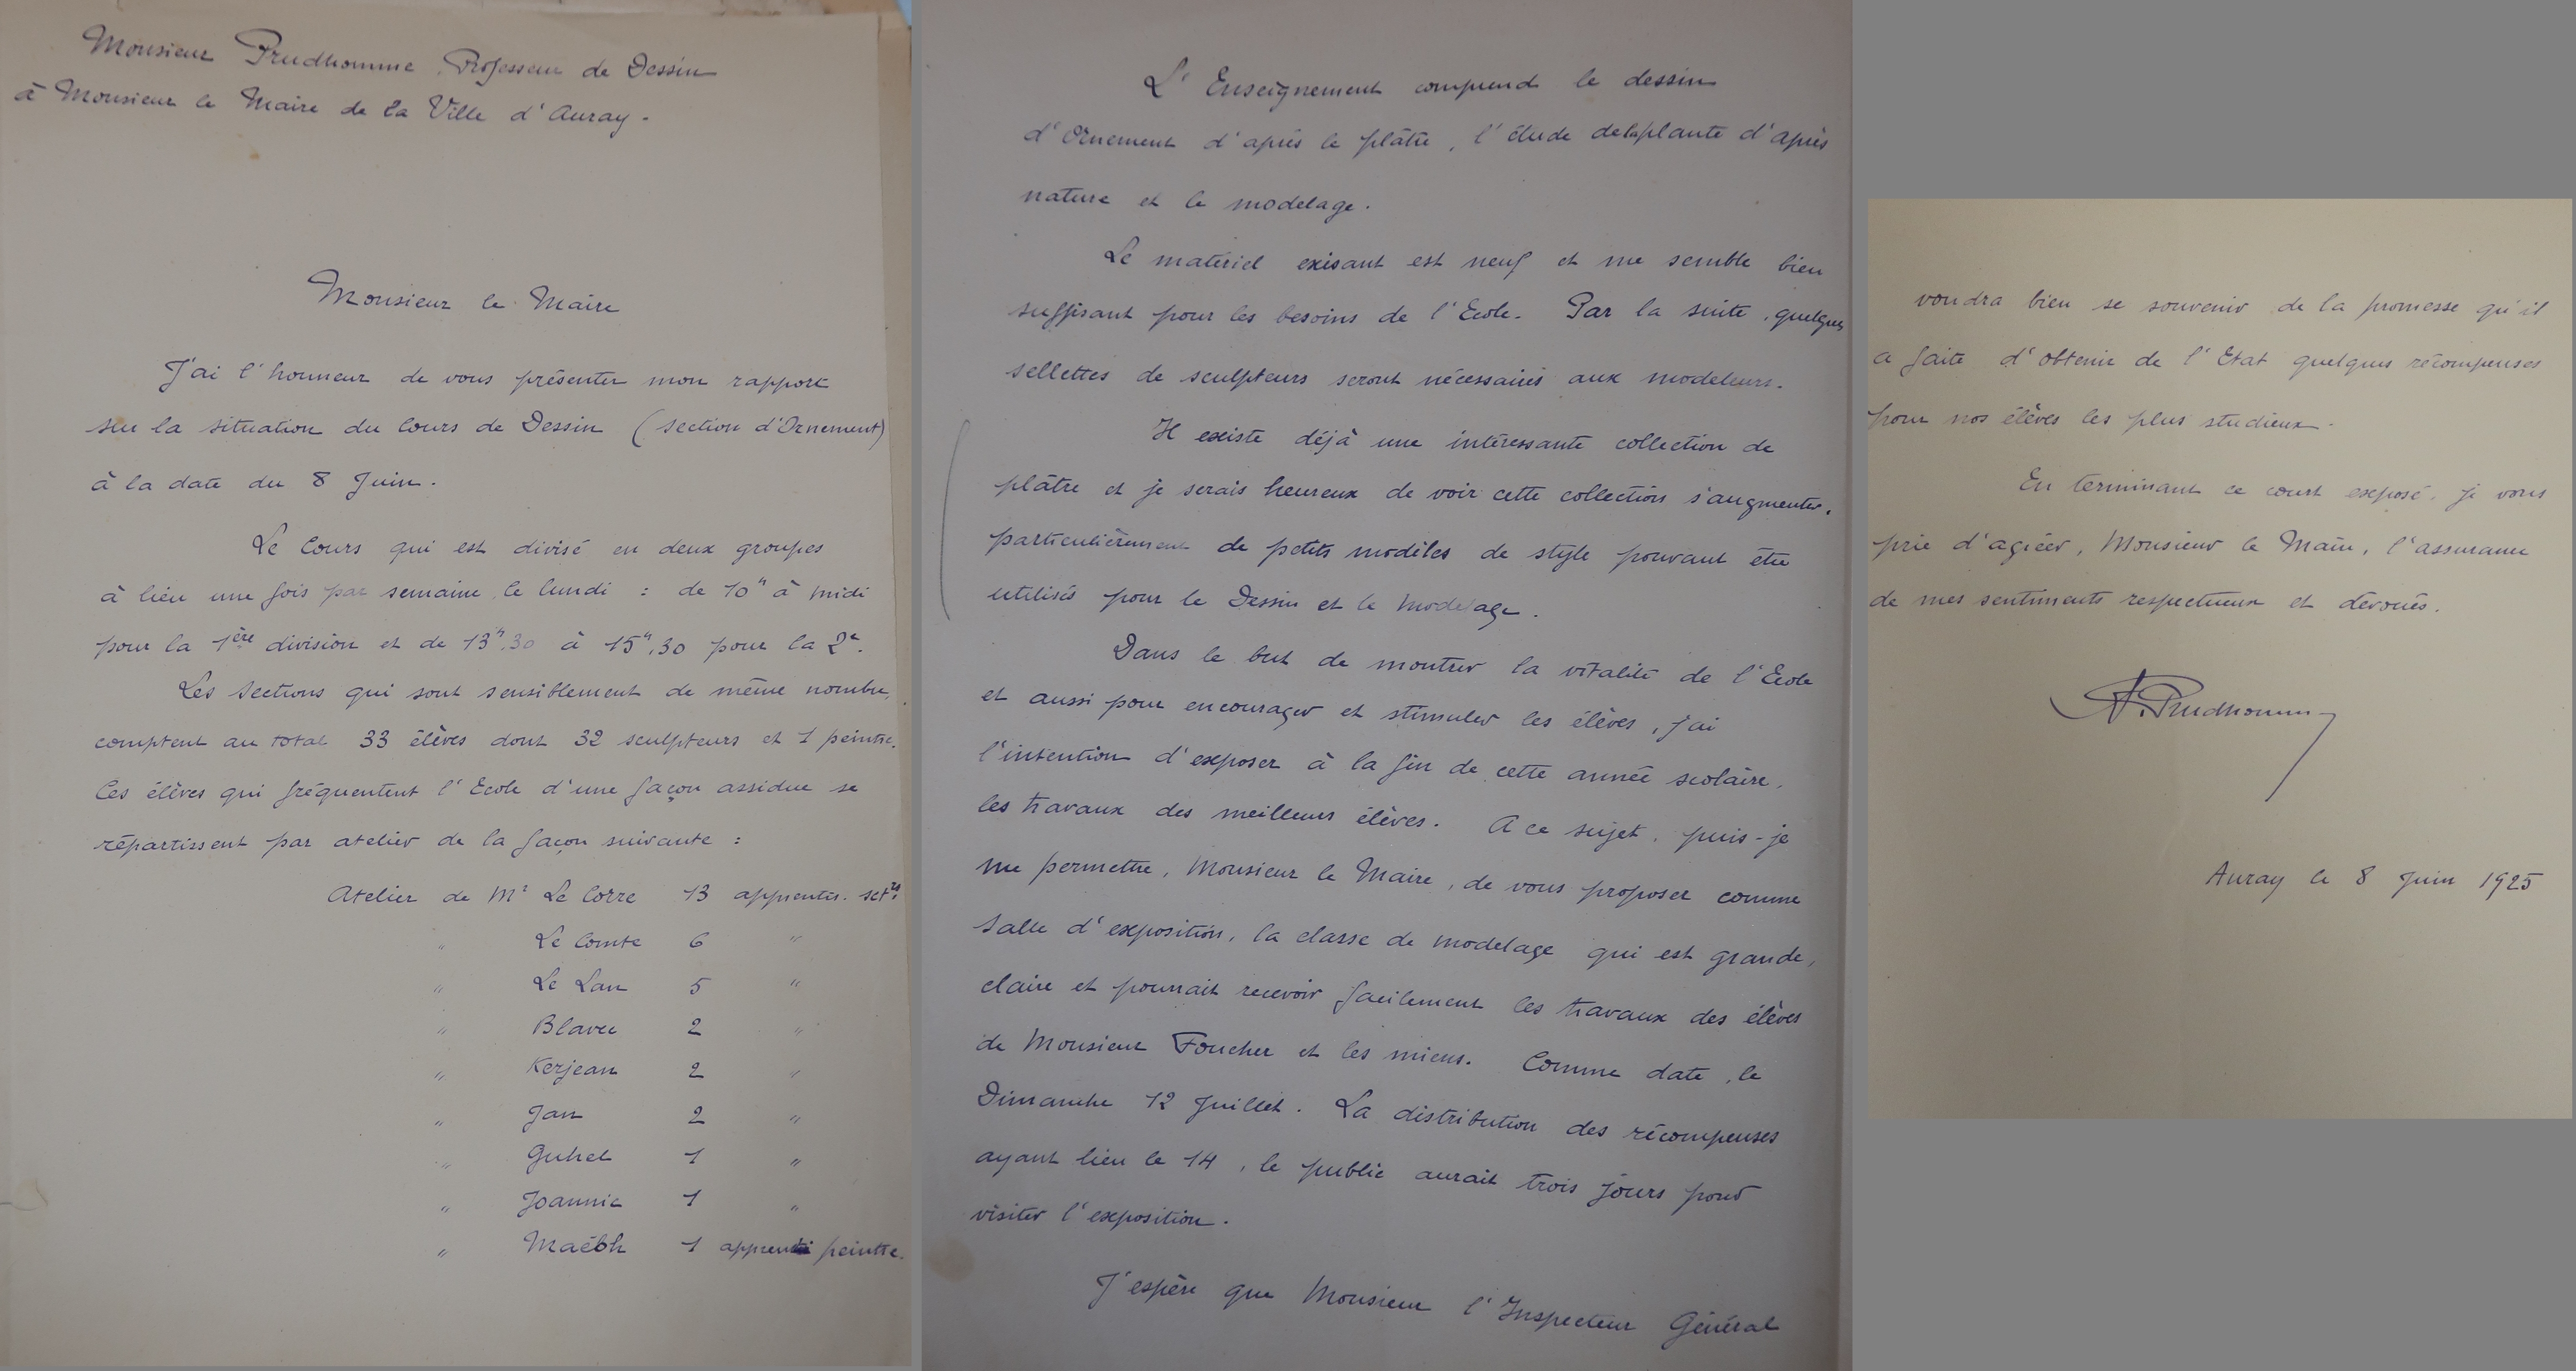 Monsieur Prudhomme, Professeur de Dessin
à Monsieur le Maire de la Ville d'Auray -
Monsieur le Maire
J'ai l'honneur de vous présenter mon rapport
sur la situation du Cours de Dessin (section d'Ornement)
à la date du 8 Juin.
Le Cours qui est divisé en deux groupes
à lieu une fois par semaine, le lundi : de 10h à midi
pour la 1ère division et de 13h,30 à 15h,30 pour la 2e.
Les sections qui sont sensiblement de même nombre,
comptent au total 33 élèves dont 32 sculpteurs et 1 peintre.
Ces élèves qui fréquentent l'Ecole d'une façon assidue se
répartissent par atelier de la façon suivante :
Atelier de Mr Le Corre 13 apprentis. sctrs
" Le Comte 6 "
" Le Lan 5 "
" Blavec 2 "
" Kerjean 2 "
" Jan 2 "
" Guhel 1 "
" Joannic 1 "
" Maébh 1 apprenti peintre.
L'Enseignement comprend le dessin
d'Ornement d'après le plâtre, l'étude de la plante d'après
nature et le modelage.
Le matériel exisant est neuf et me semble bien
suffisant pour les besoins de l'Ecole. Par la suite, quelques
sellettes de sculpteurs seront nécessaires aux modeleurs.
Il existe déjà une intéressante collection de
plâtre et je serais heureux de voir cette collection s'augmenter,
particulièrement de petits modèles de style pouvant être
utilisés pour le Dessin et le Modelage.
Dans le but de montrer la vitalité de l'Ecole
et aussi pour encourager et stimuler les élèves, j'ai
l'intention d'exposer à la fin de cette année scolaire,
les travaux des meilleurs élèves. A ce sujet, puis-je
me permettre, Monsieur le Maire, de vous proposer comme
salle d'exposition, la classe de modelage qui est grande,
claire et pourrait recevoir facilement les travaux des élèves
de Monsieur Foucher et les miens. Comme date, le
Dimanche 12 Juillet. La distribution des récompenses
ayant lieu le 14, le public aurait trois jours pour
visiter l'exposition.
J'espère que Monsieur l'Inspecteur Général
voudra bien se souvenir de la promesse qu'il
a faite d'obtenir de l'Etat quelques récompenses
pour nos élèves les plus studieux.
En terminant ce court exposé, je vous
prie d'agréer, Monsieur le Maire, l'assurance
de mes sentiments respectueux et dévoués.
A. Prudhomme
Auray le 8 Juin 1925